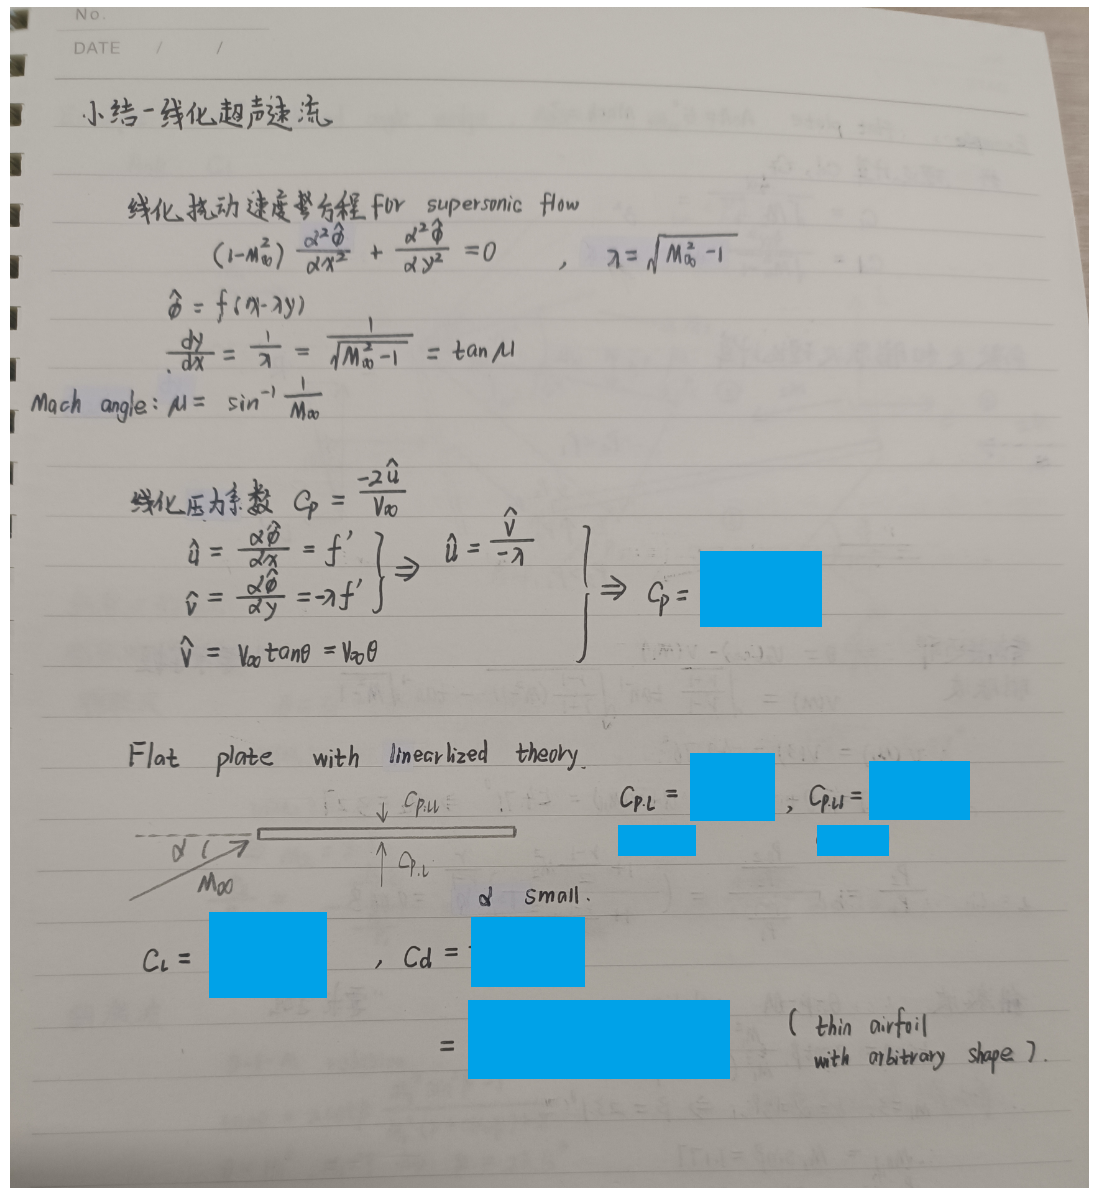 No.
DATE / /
小结-线化超声速流
线化扰动速度势方程 for supersonic flow
(1-M∞²) α²φ̂/αx² + α²φ̂/αy² = 0 , λ = √(M∞²-1)
φ̂ = f(x-λy)
dy/dx = 1/λ = 1/√(M∞²-1) = tanμ
Mach angle: μ = sin⁻¹ 1/M∞
线化压力系数 Cp = -2û/V∞
û = αφ̂/αx = f' } ⇒ û = v̂/-λ
v̂ = αφ̂/αy = -λf'
v̂ = V∞tanθ = V∞θ } ⇒ Cp =
Flat plate with linearlized theory.
Cp.L = , Cp.u =
Cp.u
α
M∞
Cp.L
α small.
CL = , Cd =
= ( thin airfoil
with arbitrary shape ).